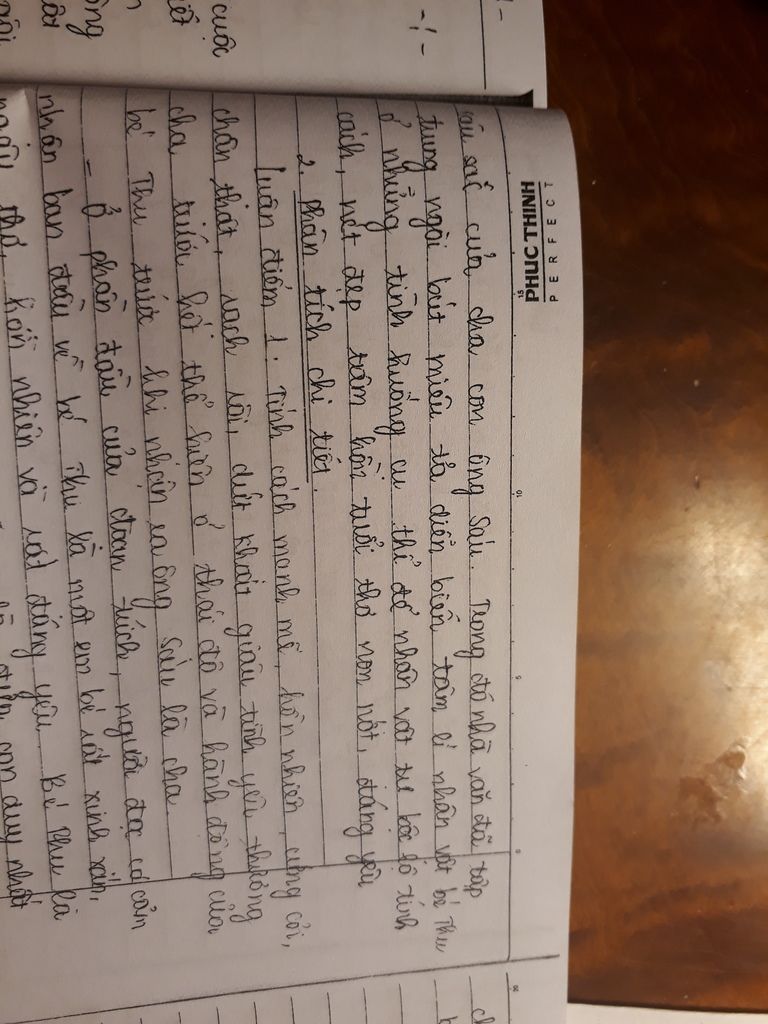 PHUCTHINH
PERFECT
sâu sắc của cha con ông Sáu. Trong đó nhà văn đã tập
trung ngòi bút miêu tả diễn biến tâm lí nhân vật bé Thu
ở những tình huống cụ thể để nhân vật tự bộc lộ tính
cách, nét đẹp tâm hồn tuổi thơ non nớt, đáng yêu
2. Phân tích chi tiết.
Luận điểm 1: Tính cách mạnh mẽ, hồn nhiên, cứng cỏi,
chân thật, rạch ròi, dứt khoát giàu tình yêu thương
cha, trước hết thể hiện ở thái độ và hành động của
bé Thu trước khi nhận ra ông Sáu là cha.
- Ở phần đầu của đoạn trích, người đọc có cảm
nhận ban đầu về bé Thu là một em bé rất xinh xắn,
ngây thơ, hồn nhiên và rất đáng yêu. Bé Thu là
con duy nhất
cuộc